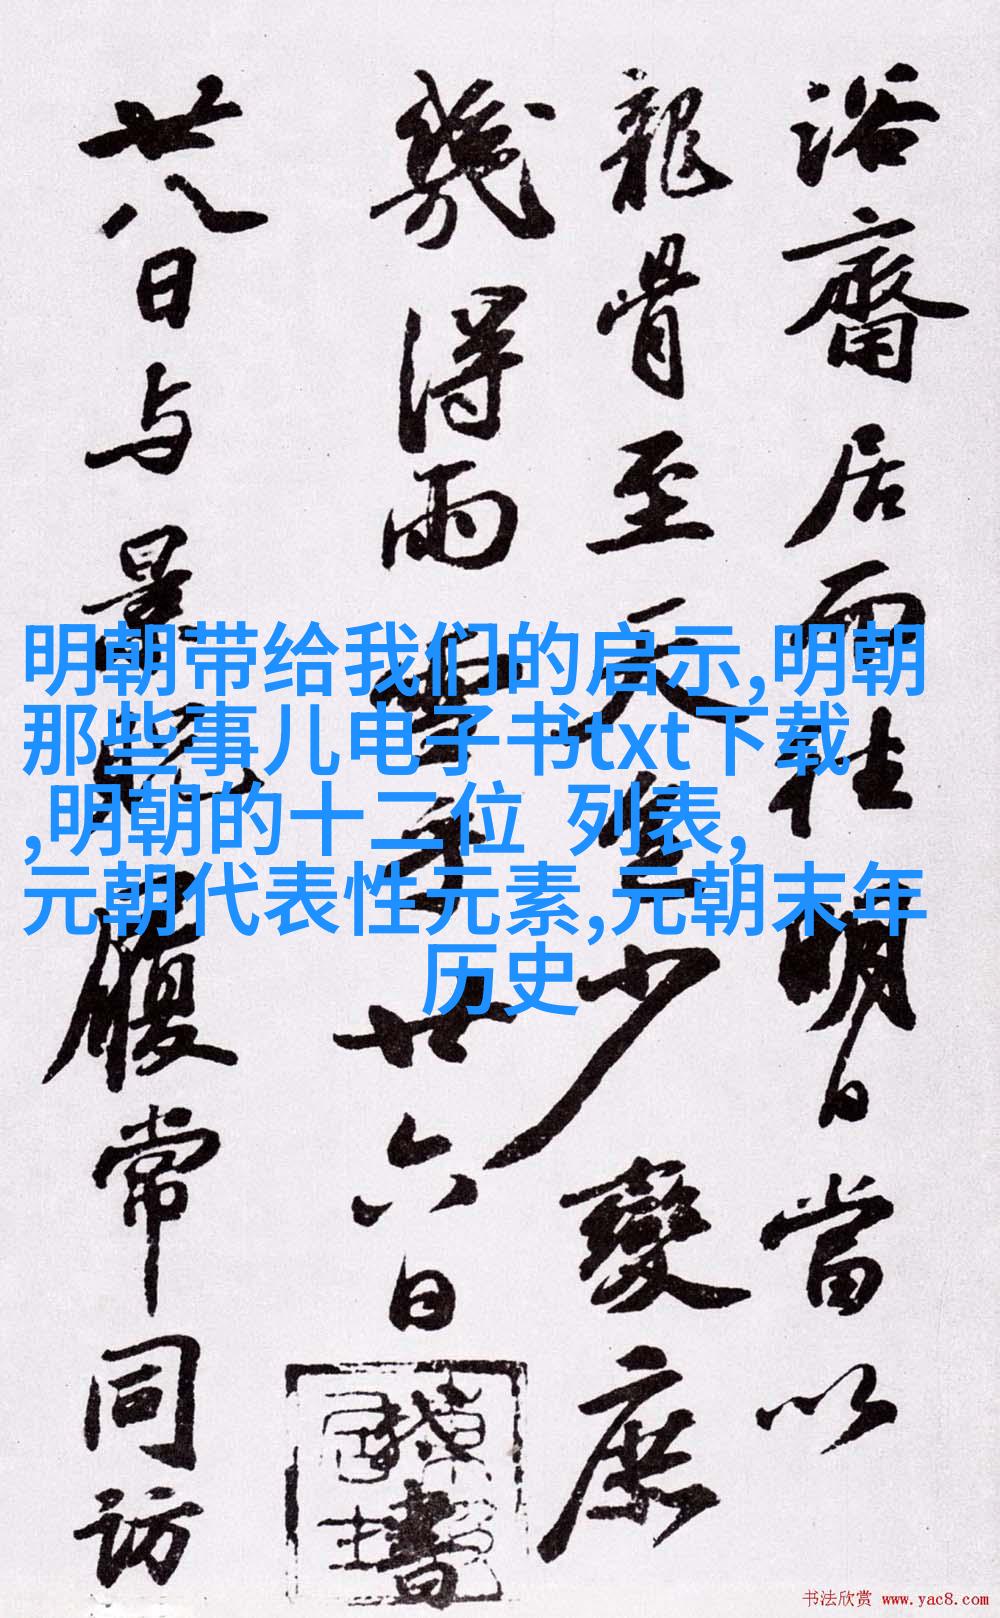 浴齋居而往明日當以
龍骨至天竺少變庶
幾得雨雪乎廿六日
書
廿八日与景
腹常同访
明朝带给我们的启示,明朝
那些事儿电子书txt下载
,明朝的十二位 列表,
元朝代表性元素,元朝末年
历史
书法欣赏 www.yac8.com